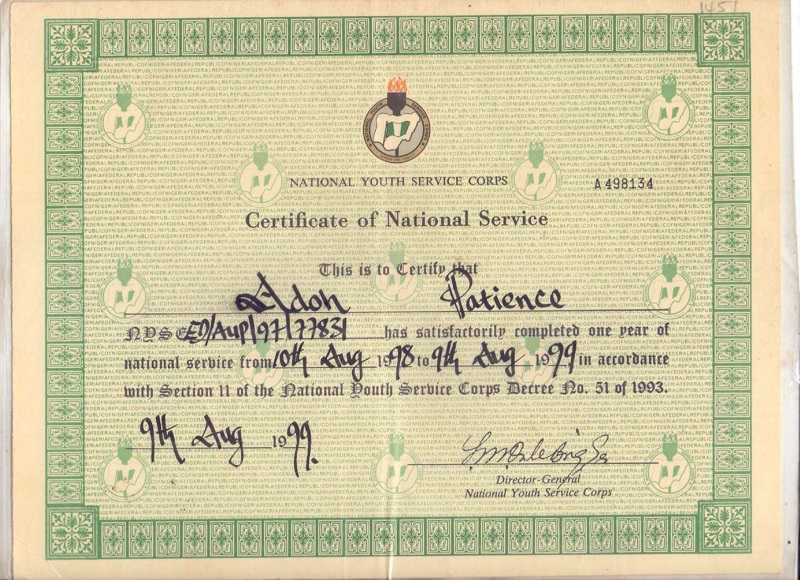 1451
NATIONAL YOUTH SERVICE CORPS
A 498134
Certificate of National Service
This is to Certify that
Adoh Patience
NYSC ED/AUP/97/77831 has satisfactorily completed one year of
national service from 10th Aug 1998 to 9th Aug 1999 in accordance
with Section 11 of the National Youth Service Corps Decree No. 51 of 1993.
9th Aug 1999.
Director-General
National Youth Service Corps